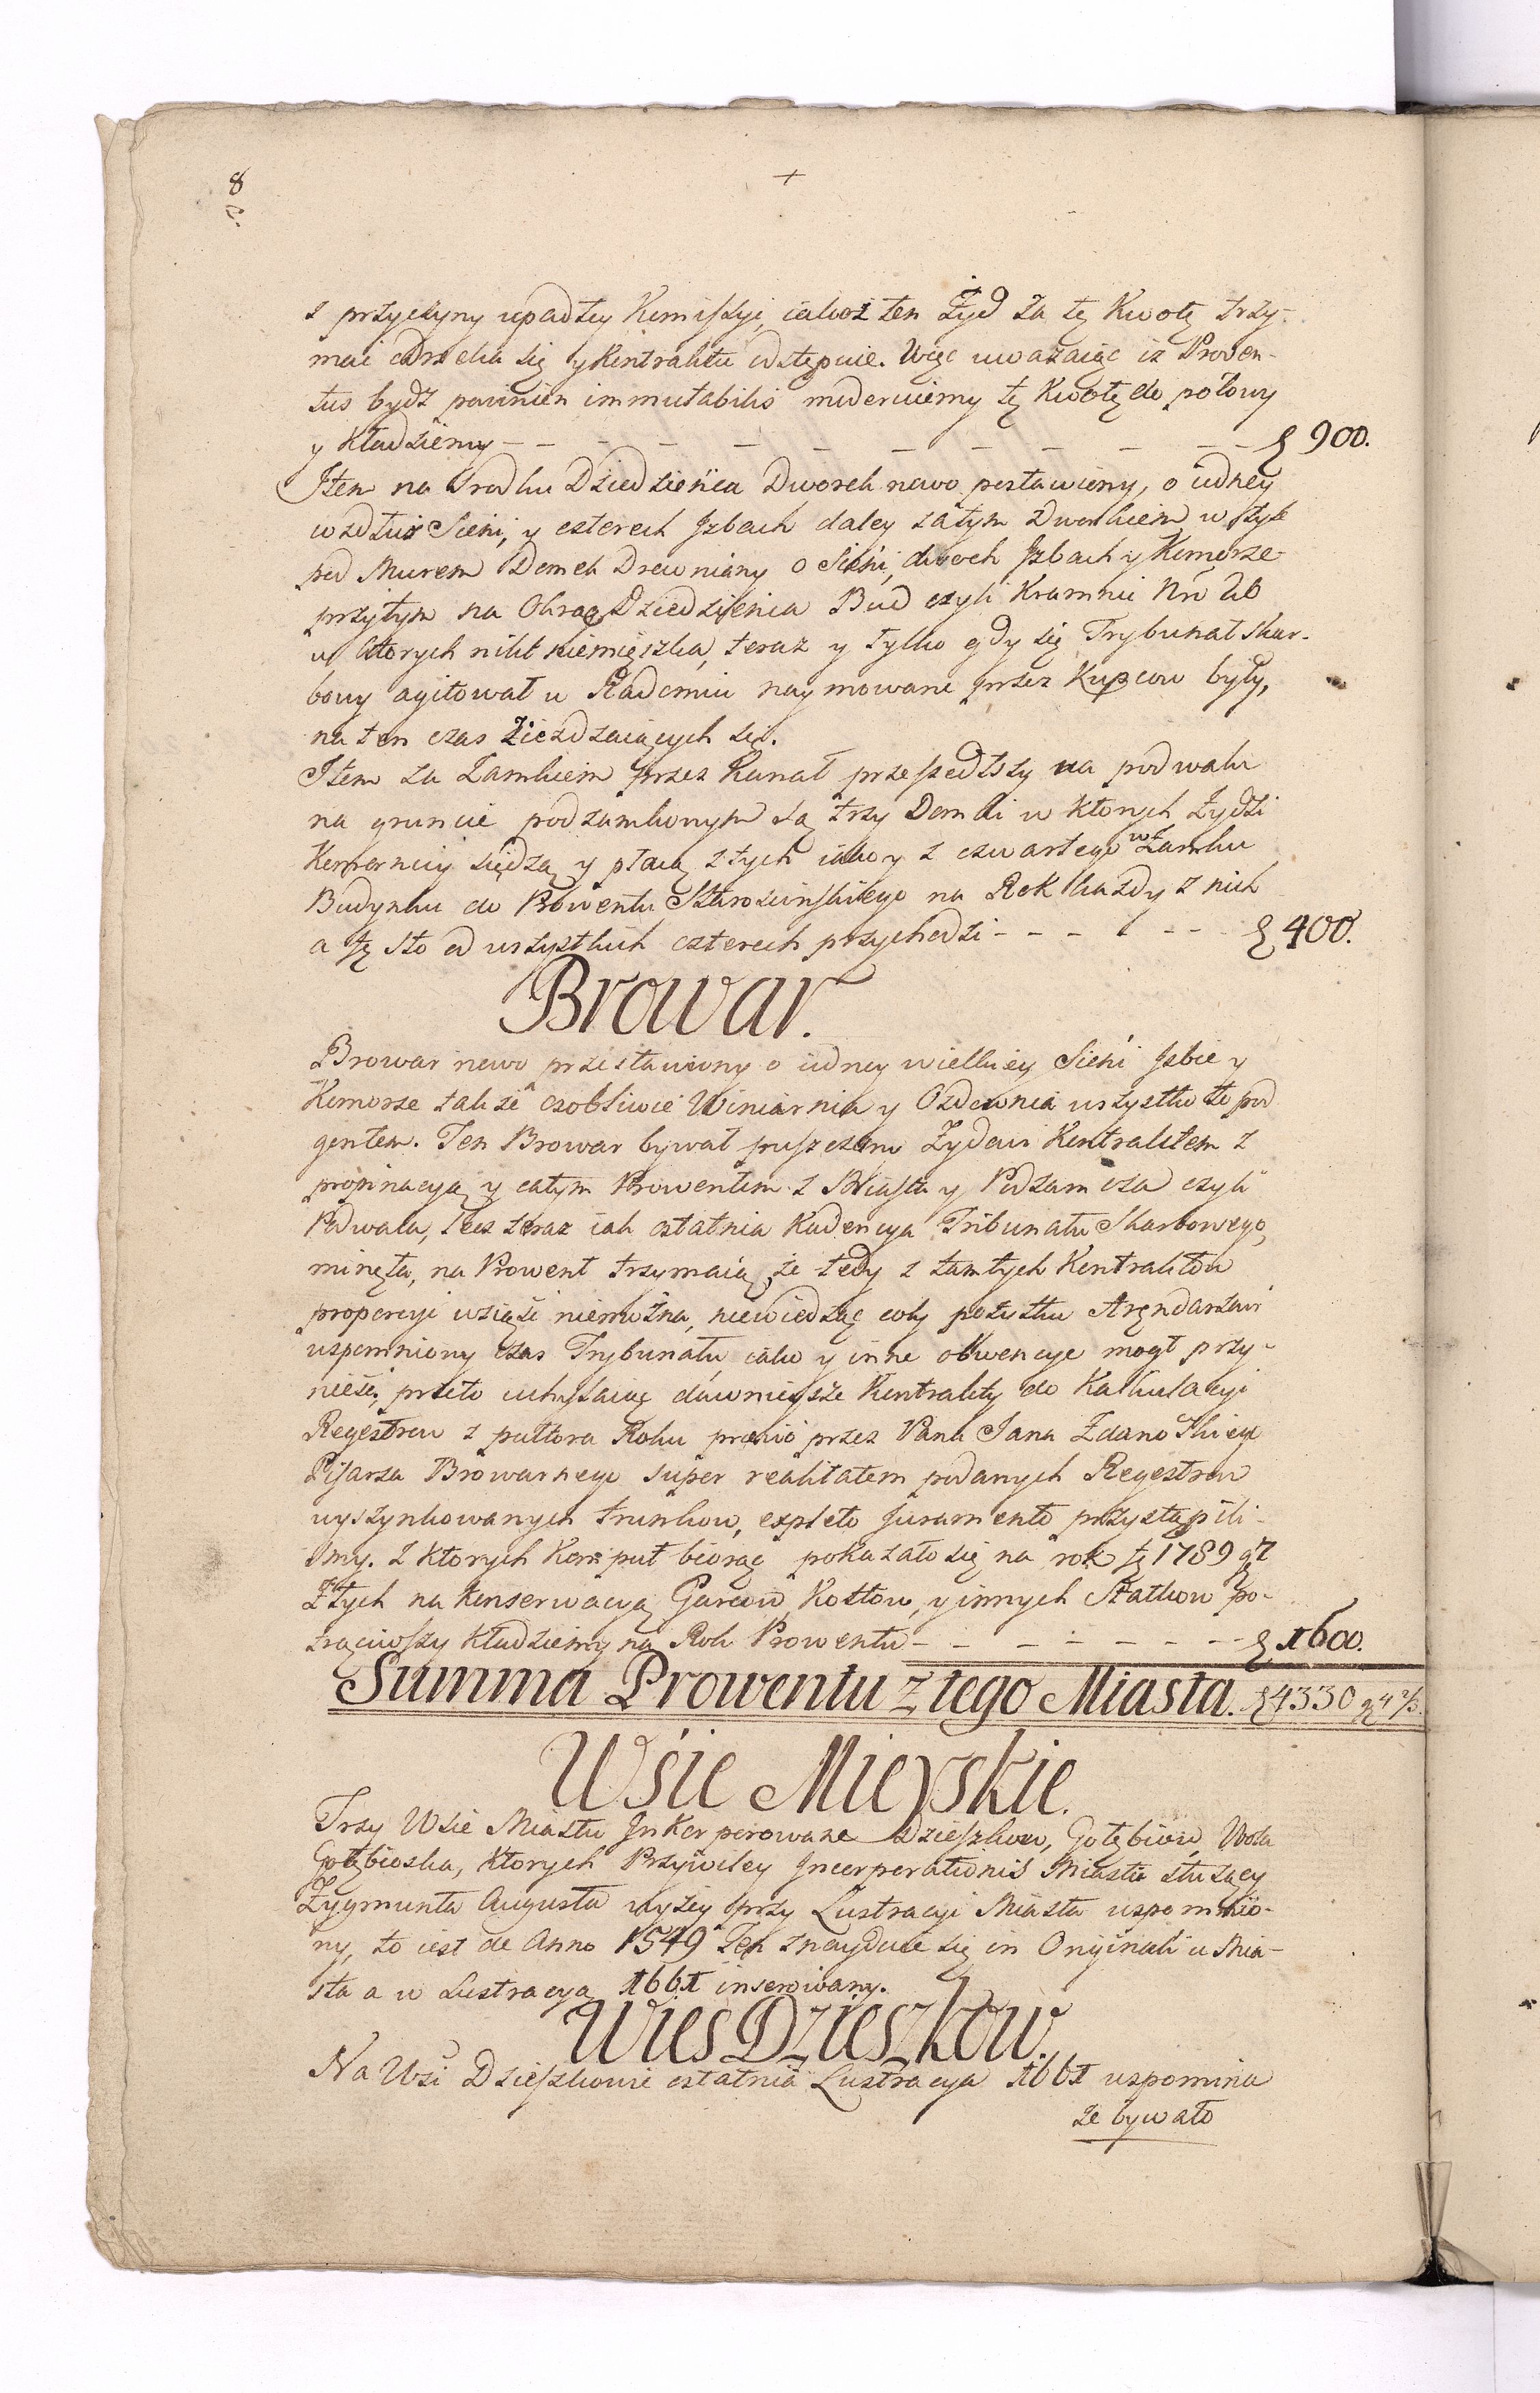 8
z przyczyny upadłey Kommissyi, iakoż ten Żyd za tę Kwotę trzy-
mać odrzeka się y Kontraktu odstępuie. Więc uważaiąc iż Proven-
tus bydź powinien immutabilis moderuiemy tę Kwotę do połowy
y kładziemy - - - - - - - - - - f 900.
Item na srodku Dziedzieńca Dworek nowo postawiony, o iedney
wzdłuż Sieni, y czterech Izbach daley zatym Dworkiem w tyle
pod Murem Domek Drewniany o Sieni, dwoch Izbach y Komorze
przytym na Okrąg Dziedzieńca Bud czyli Kramnic Nro 26
w ktorych nikt niemięszka, teraz y tylko gdy się Trybunał skar-
bowy agitował w Radomiu naymowane przez Kupcow były,
na ten czas zieżdzaiących się.
Item za Zamkiem przez Kanał przeszedłszy na podwalu
na gruncie podzamkowym są trzy Domki w ktorych Żydzi
Komornicy siedzą y płacą z tych iako y z czwartego w Zamku
Budynku do Prowentu Starościńskiego na Rok każdy z nich
a fł sto od wszystkich czterech przychodzi - - - - - - f 400.
Browar.
Browar nowo przestawiony o iedney wielkiey Sieni Izbie y
Komorze także osobliwie Winiarnia y Ozdownia wszystko to pod
gontem. Ten Browar bywał puszczany Żydowi Kontraktem z
propinacyą y całym Prowentem z Miasta y Podzamcza czyli
Podwala, lecz teraz iak ostatnia Kadencya Tribunału Skarbowego,
minęła, na Prowent trzymaią, że tedy z tamtych Kontraktow
proporcyi wziąść niemożna, niewiedząc coby pożytku Aręndarzowi
wspomniony czas Trybunału, iako y inne okwencye mogł przy-
nieść, przeto uchylaiąc dawnieysze Kontrakty do Kalkulacyi
Regestrow z pułtora Roku prævio przez Pana Jana Zdanowskiego
Pisarza Browarnego super realitatem podanych Regestrow
wyszynkowanych trunkow, expleto juramento przystąpili-
smy. Z ktorych Komput biorąc pokazało się na rok fł 1789 gr 7
Z tych na konserwacyą Garcow, Kotłow, y innych Statkow po-
trąciwszy kładziemy na Rok Prowentu - - - - - - - f 1600.
Summa Prowentu z tego Miasta. f 4330 gr 4 2/3.
Wśie Mieyskie.
Trzy Wsie Miastu Inkorporowane Dzieszkow, Gołębiow, Wola
Gołębioska, ktorych Przywiley Incorporationis Miastu służący
Zygmunta Augusta wyżey przy Lustracyi Miasta wspomnio-
ny, to iest de Anno 1549 Ten znayduie się in Originali u Mia-
sta a w Lustracyą 1661 inserowany.
Wies Dzieszkow.
Na Wsi Dzieszkowie ostatnia Lustracya 1661 wspomina
że bywało